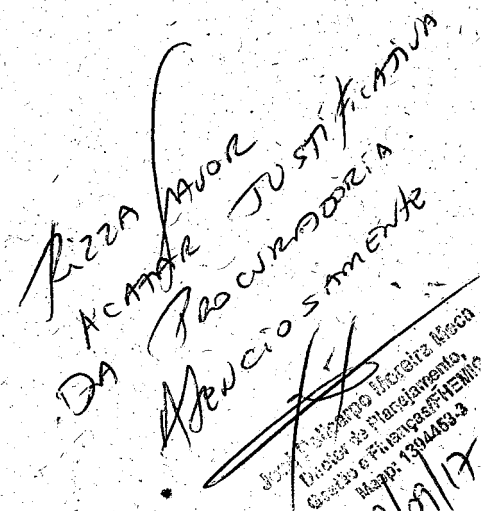 Rizza favor
acatar justificativa
da Procuradoria.
Atenciosamente
José Policarpo Moreira
Diretor de Planejamento,
Gestão e Finanças/FHEMIG
Masp: 1394453-3
/09/17